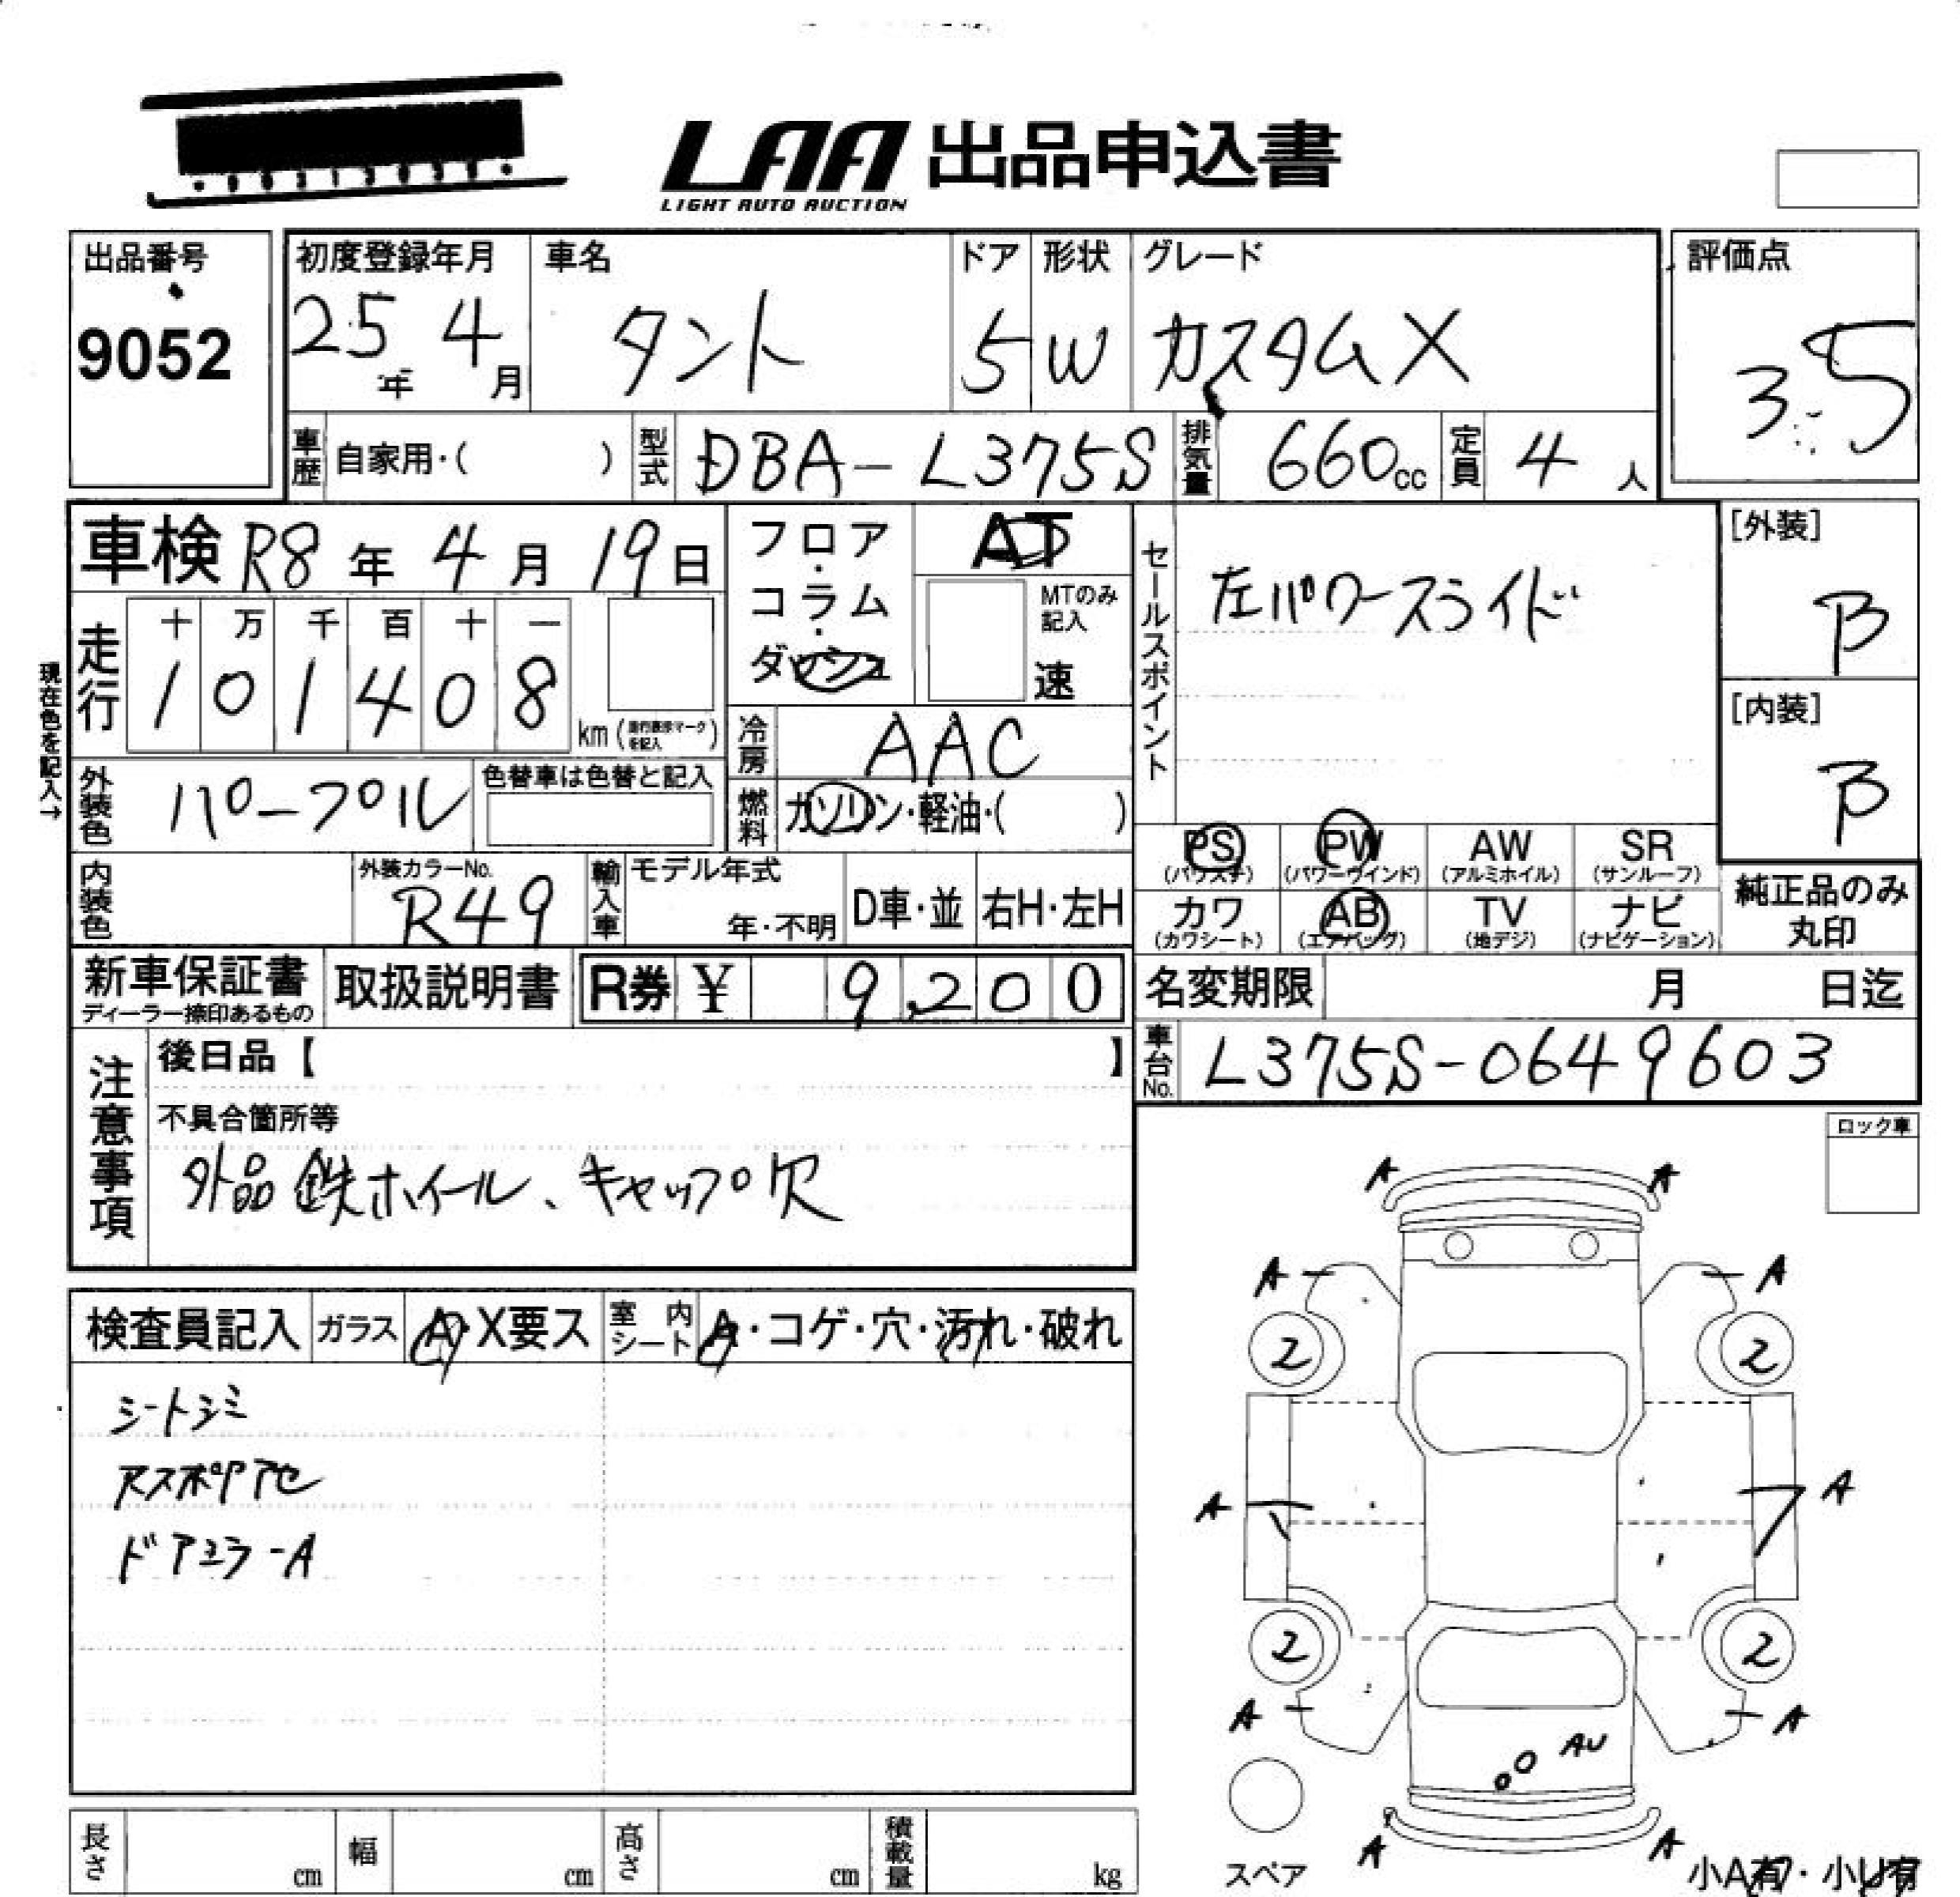 LAA 出品申込書
LIGHT AUTO AUCTION
出品番号
9052
初度登録年月
25年 4月
車名
タント
ドア
5
形状
W
グレード
カスタムX
評価点
3.5
車歴 自家用・( )
型式 DBA-L375S
排気量 660cc
定員 4人
車検 R8年 4月 19日
現在色を記入→
走行
十 万 千 百 十 一
1 0 1 4 0 8
km (
を記入 )
フロア・コラム・ダッシュ
AT
MTのみ記入
速
冷房 AAC
燃料 ガソリン・軽油・( )
セールスポイント
左パワースライド
[外装]
B
[内装]
B
外装色 パープル
色替車は色替と記入
内装色
外装カラーNo.
R49
輸入車
モデル年式
年・不明
D車・並
右H・左H
PS (パワステ)
PW (パワーウインド)
AW (アルミホイル)
SR (サンルーフ)
カワ (カワシート)
AB (エアバッグ)
TV (地デジ)
ナビ (ナビゲーション)
純正品のみ
丸印
新車保証書
ディーラー捺印あるもの
取扱説明書
R券 ¥ 9,200
名変期限 月 日迄
車台No. L375S-0649603
注意事項
後日品【 】
不具合箇所等
外品鉄ホイール、キャップ欠
ロック車
検査員記入
ガラス A・X要ス
室内シート A・コゲ・穴・汚れ・破れ
シートシミ
ドアミラーA
A A
A A
2 2
A A
2 2
A A
AU
A A
スペア
小A有・小U有
長さ cm
幅 cm
高さ cm
積載量 kg